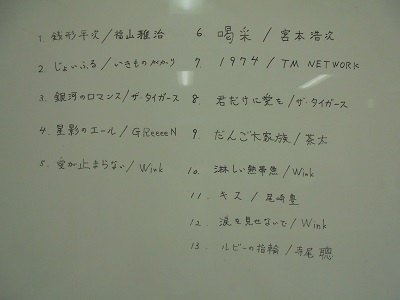 1. 銭形平次/福山雅治
2. じょいふる/いきものがかり
3. 銀河のロマンス/ザ・タイガース
4. 星影のエール/GReeeeN
5. 愛が止まらない/Wink
6. 喝采/宮本浩次
7. 1974/TM NETWORK
8. 君だけに愛を/ザ・タイガース
9. だんご大家族/茶太
10. 淋しい熱帯魚/Wink
11. キス/尾崎豊
12. 涙を見せないで/Wink
13. ルビーの指輪/寺尾聰